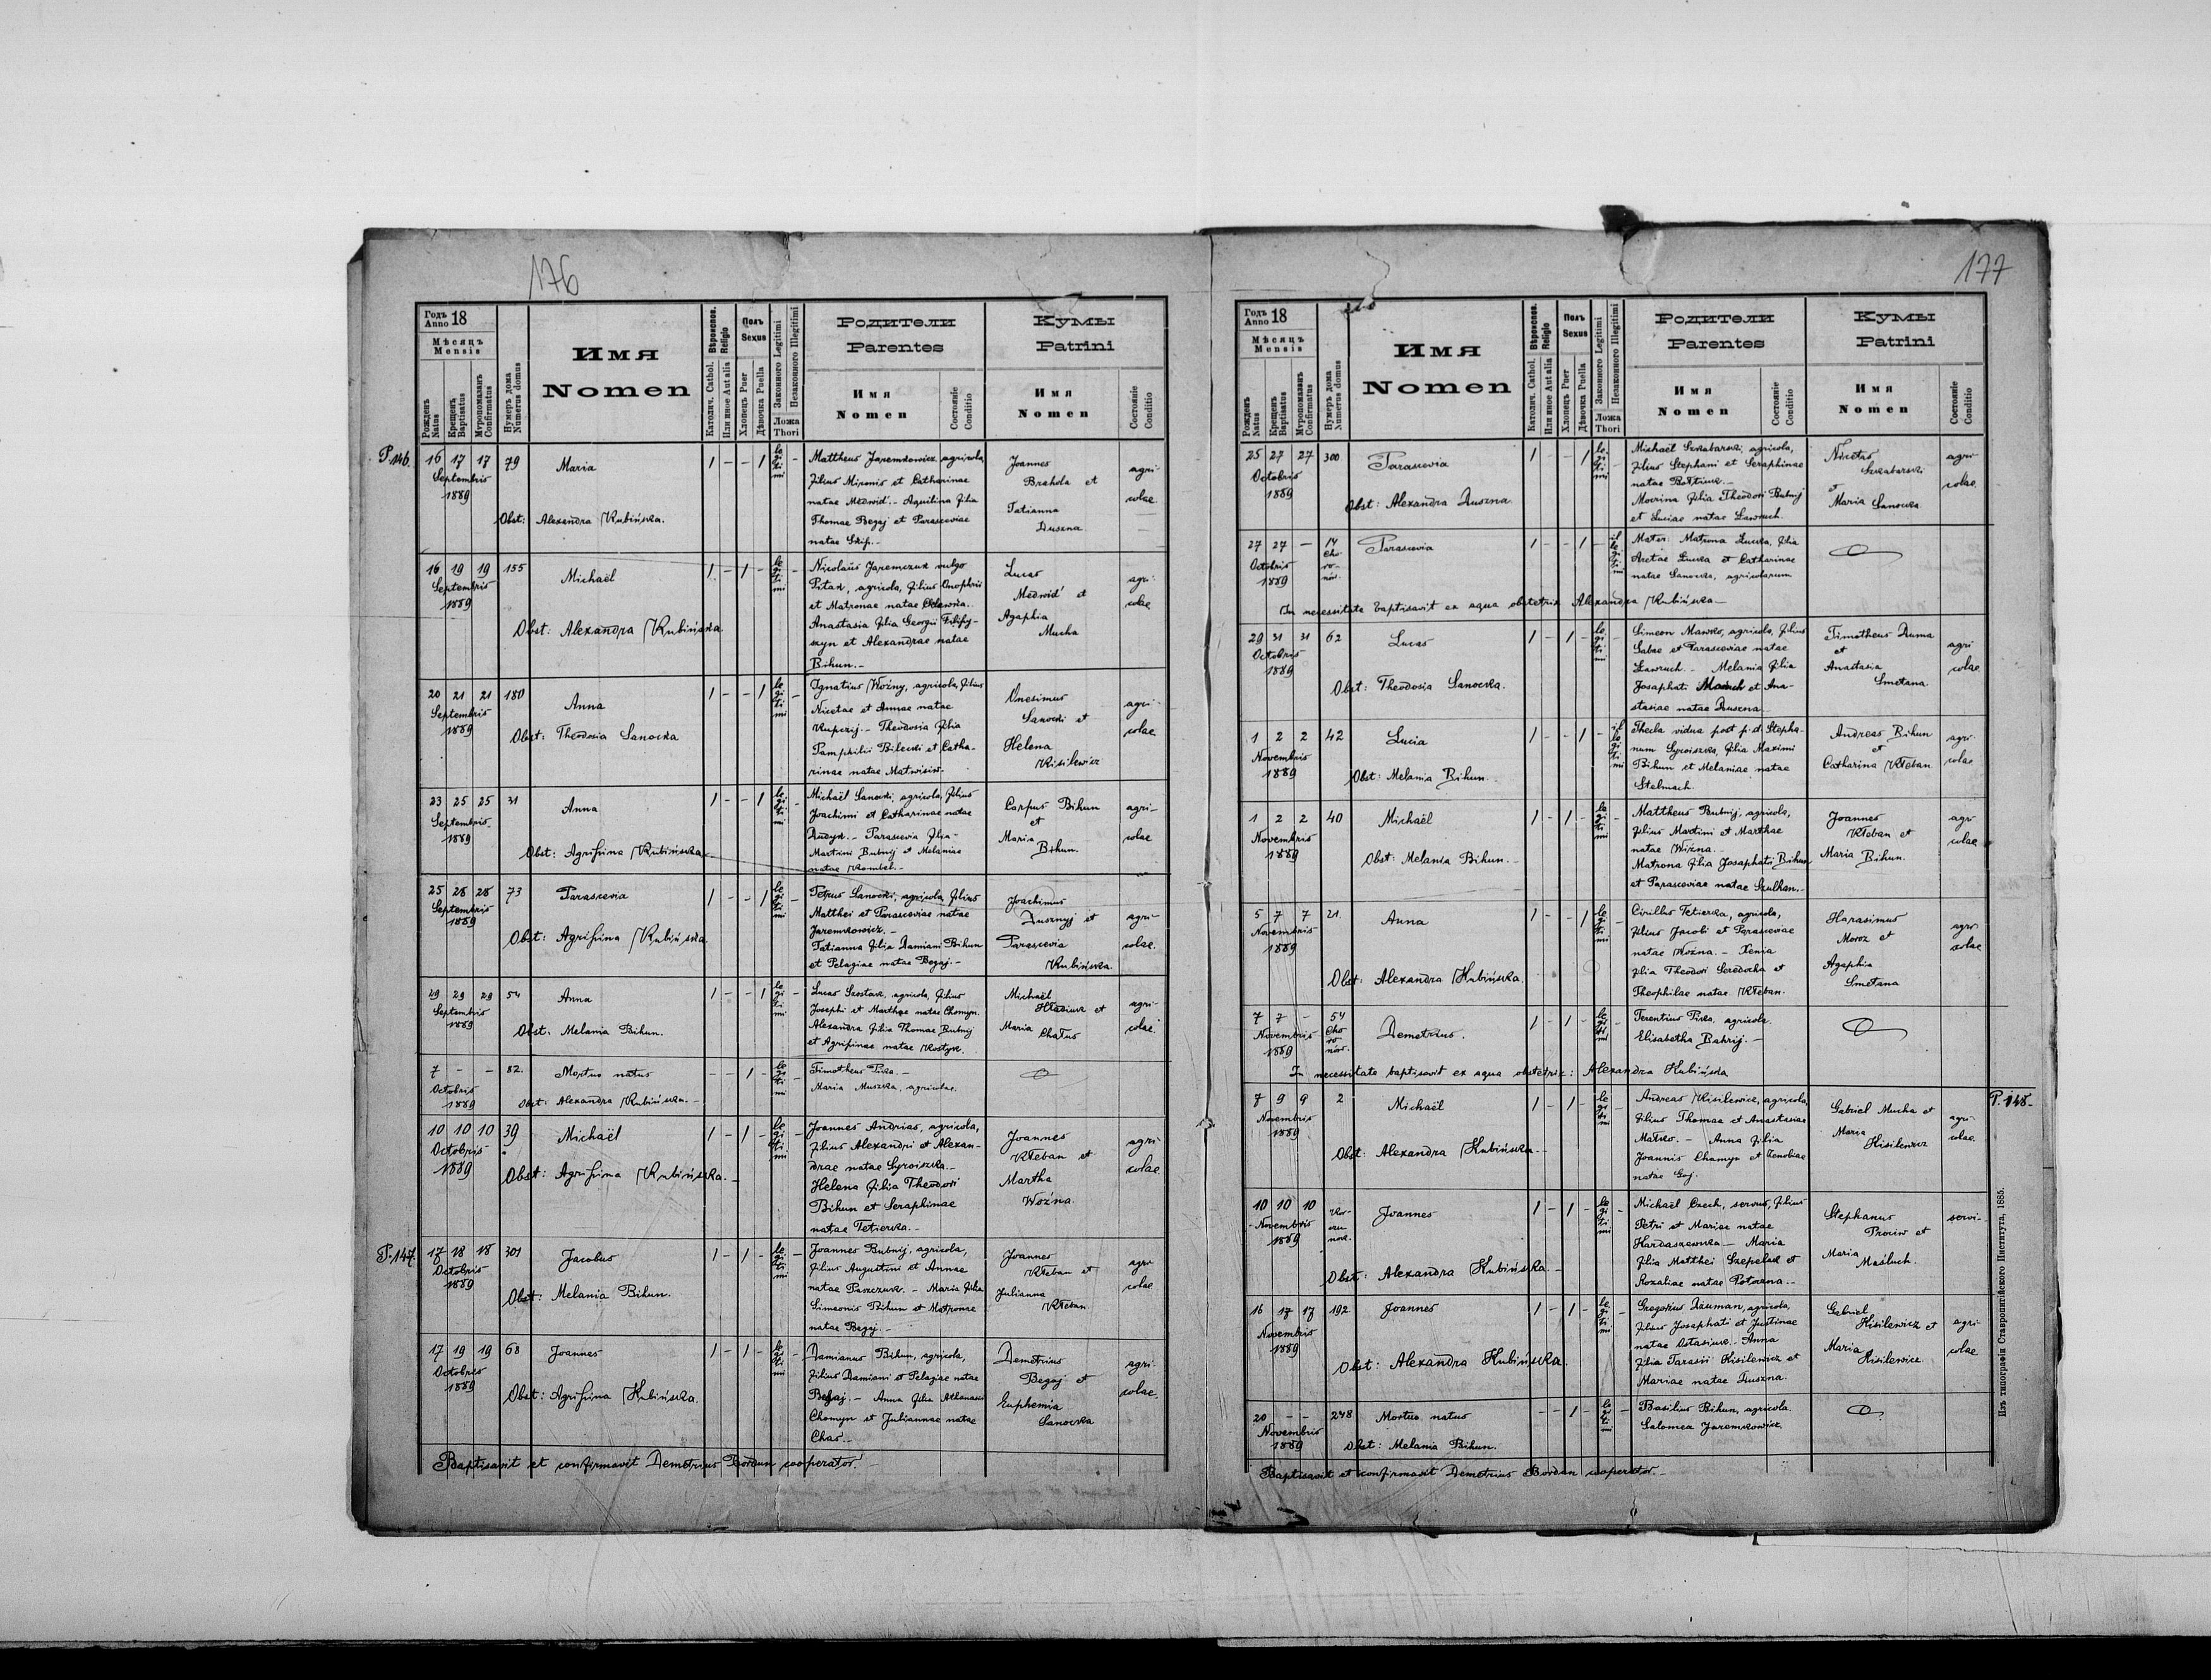 176
Годъ Anno 18
Мѣсяцъ
Mensis
Рожденъ Natus
Крещенъ Baptisatus
Муропомазанъ Confirmatus
Нумеръ дома Numerus domus
Имя
Nomen
Вѣроисповѣд. Religio
Католич. Cathol.
Или иное Aut alia
Полъ
Sexus
Хлопецъ Puer
Дѣвочка Puella
Законного Legitimi
Незаконного Illegitimi
Ложа
Thori
Родители
Parentes
Имя
Nomen
Состояніе
Conditio
Кумы
Patrini
Имя
Nomen
Состояніе
Conditio
P.146.
16 17 17 79 Maria 1 - - 1 legitimi -
Septembris
1889
Obst: Alexandra Kubińska.
Mattheus Jaremkowicz agricola,
filius Mironis et Catharinae
natae Medwid'. - Aquilina filia
Thomae Begaj et Parasceviae
natae Skip. -
Joannes
Brehola et
Tatianna
Duszna
agri-
colae
16 19 19 155 Michaël 1 - 1 - legitimi -
Septembris
1889
Obst: Alexandra Kubińska
Nicolaus Jaremczuk vulgo
Pitak, agricola, filius Onophrii
et Matronae natae
Anastasia filia Georgii Filipy-
szyn et Alexandrae natae
Bihun. -
Lucas
Medwid' et
Agaphia
Mucha
agri-
colae
20 21 21 180 Anna 1 - - 1 legitimi -
Septembris
1889
Obst: Theodosia Sanocka
Ignatius Woźny, agricola, filius
Nicetae et Annae natae
Kuperij. - Theodosia filia
Pamphilii Bilecki et Catha-
rinae natae Matwisiw. -
Onesimus
Sanocki et
Helena
Kisilewicz
agri-
colae
23 25 25 31 Anna 1 - - 1 legitimi -
Septembris
1889
Obst: Agrifina Kubińska
Michaël Sanocki, agricola, filius
Joachimi et Catharinae natae
Dudyk. - Parascevia filia
Martini Bubnij et Melaniae
natae Kombel. -
Carpus Bihun
et
Maria
Bihun.
agri-
colae
25 28 28 73 Parascevia 1 - - 1 legitimi -
Septembris
1889
Obst: Agrifina Kubińska
Petrus Sanocki, agricola, filius
Matthei et Parasceviae natae
Jaremkowicz. -
Tatianna filia Damiani Bihun
et Pelagiae natae Begaj. -
Joachimus
Dusznyj et
Parascevia
Kubińska.
agri-
colae.
29 29 29 54 Anna 1 - - 1 legitimi -
Septembris
1889
Obst: Melania Bihun.
Lucas Szostak, agricola, filius
Josephi et Marthae natae Chomyn.
Alexandra filia Thomae Bubnij
et Agrifinae natae Kostyk.
Michaël
Hłasiuk et
Maria
Chałus
agri-
colae.
7 - - 82. Mortuo natus - - 1 - legitimi -
Octobris
1889
Obst: Alexandra Kubińska. -
Timotheus Pika. -
Maria Muszka, agricolae.
10 10 10 39 Michaël 1 - 1 - legitimi -
Octobris
1889
Obst: Agrifina Kubińska. -
Joannes Andrias, agricola,
filius Alexandri et Alexan-
drae natae Syroiszka. -
Helena filia Theodori
Bihun et Seraphinae
natae Tetierka. -
Joannes
Kłeban et
Martha
Woźna.
agri
colae.
P.147.
17 18 18 301 Jacobus 1 - 1 - legitimi -
Octobris
1889
Obst: Melania Bihun.
Joannes Bubnij, agricola,
filius Augustini et Annae
natae Paszczuk. - Maria filia
Simeonis Bihun et Matronae
natae Begaj. -
Joannes
Kłeban et
Julianna
Kłeban
agri
colae
17 19 19 68 Joannes 1 - 1 - legitimi -
Octobris
1889
Obst: Agrifina Kubińska.
Damianus Bihun, agricola,
filius Damiani et Pelagiae natae
Begaj. - Anna filia Athanasii
Chomyn et Juliannae natae
Chas. -
Demetrius
Begaj et
Euphemia
Sanocka
agri-
colae.
Baptisavit et confirmavit Demetrius Bordun cooperator. -
177
Годъ Anno 18
Мѣсяцъ
Mensis
Рожденъ Natus
Крещенъ Baptisatus
Муропомазанъ Confirmatus
Нумеръ дома Numerus domus
Имя
Nomen
Вѣроисповѣд. Religio
Католич. Cathol.
Или иное Aut alia
Полъ
Sexus
Хлопецъ Puer
Дѣвочка Puella
Законного Legitimi
Незаконного Illegitimi
Ложа
Thori
Родители
Parentes
Имя
Nomen
Состояніе
Conditio
Кумы
Patrini
Имя
Nomen
Состояніе
Conditio
25 27 27 300 Parascevia 1 - - 1 legitimi -
Octobris
1889
Obst: Alexandra Duszna
Michaël Szkabarski, agricola,
filius Stephani et Seraphinae
natae Bołtiuk. -
Mocrina filia Theodori Bubnij
et Luciae natae Ławruch.
Nicetas
Szkabarski
et
Maria Sanocka.
agri-
colae.
27 27 - 14 Parascevia 1 - - 1 - illegitimi
Octobris
1889
Cho-
ro-
nów.
Mater: Matrona Łucka, filia
Arctae Łucka et Catharinae
natae Sanocka, agricolarum
In necessitate baptisavit ex aqua obstetrix Alexandra Kubińska -
29 31 31 62 Lucas 1 - 1 - legitimi -
Octobris
1889
Obst: Theodosia Sanocka.
Simeon Mawko, agricola, filius
Sabae et Parasceviae natae
Ławruch. - Melania filia
Josaphati et Ana-
stasiae natae Duszna.
Timotheus Duma
et
Anastasia
Smetana.
agri
colae
1 2 2 42 Lucia 1 - - 1 - illegitimi
Novembris
1889
Obst: Melania Bihun.
Thecla vidua post p.d. Stepha-
num Syroiszka, filia Maximi
Bihun et Melaniae natae
Stelmach.
Andreas Bihun
et
Catharina Kłeban
agri-
colae
1 2 2 40 Michaël 1 - 1 - legitimi -
Novembris
1889
Obst: Melania Bihun. -
Mattheus Bubnij, agricola,
filius Martini et Marthae
natae Woźna. -
Matrona filia Josaphati Bihun
et Parasceviae natae Szulhan. -
Joannes
Kłeban et
Maria Bihun.
agri-
colae
5 7 7 21. Anna 1 - - 1 legitimi -
Novembris
1889
Obst: Alexandra Kubińska
Cirillus Tetierka, agricola,
filius Jacobi et Parasceviae
natae Woźna. - Xenia
filia Theodori Seredocha et
Theophilae natae Kłeban.
Harasimus
Moroz et
Agaphia
Smetana
agri-
colae
7 7 - 54 Demetrius. 1 - 1 - legitimi -
Novembris
1889
Cho-
ro-
nów.
Terentius Pika, agricola.
Elisabetha Bahrij. -
In necessitate baptisavit ex aqua obstetrix: Alexandra Kubińska
P. 148.
7 9 9 2 Michaël 1 - 1 - legitimi -
Novembris
1889
Obst: Alexandra Kubińska -
Andreas Kisilewicz, agricola,
filius Thomae et Anastasiae
Małko. - Anna filia
Joannis Chomyn et Xenobiae
natae Goj.
Gabriel Mucha et
Maria
Kisilewicz
agri-
colae.
10 10 10 Joannes 1 - 1 - legitimi -
Novembris
1889
Obst: Alexandra Kubińska. -
Michaël Czech, servus, filius
Petri et Mariae natae
Hardaszewska - Maria
filia Matthei Szepelak et
Rozaliae natae Potorena. -
Stephanus
Prociw et
Maria
Maśluch.
servi-
16 17 17 192 Joannes 1 - 1 - legitimi -
Novembris
1889
Obst: Alexandra Kubińska.
Gregorius Dauman, agricola,
filius Josaphati et Justinae
natae Ostasiuk. - Anna
filia Tarasii Kisilewicz et
Mariae natae Duszna.
Gabriel
Kisilewicz et
Maria
Kisilewicz
agri-
colae
20 - - 248 Mortuo natus - - 1 - legitimi -
Novembris
1889
Obst: Melania Bihun.
Basilius Bihun, agricola
Salomea Jaremkowicz.
Baptisavit et confirmavit Demetrius Bordun cooperator. -
Изъ типографіи Ставропигійского Института, 1885.